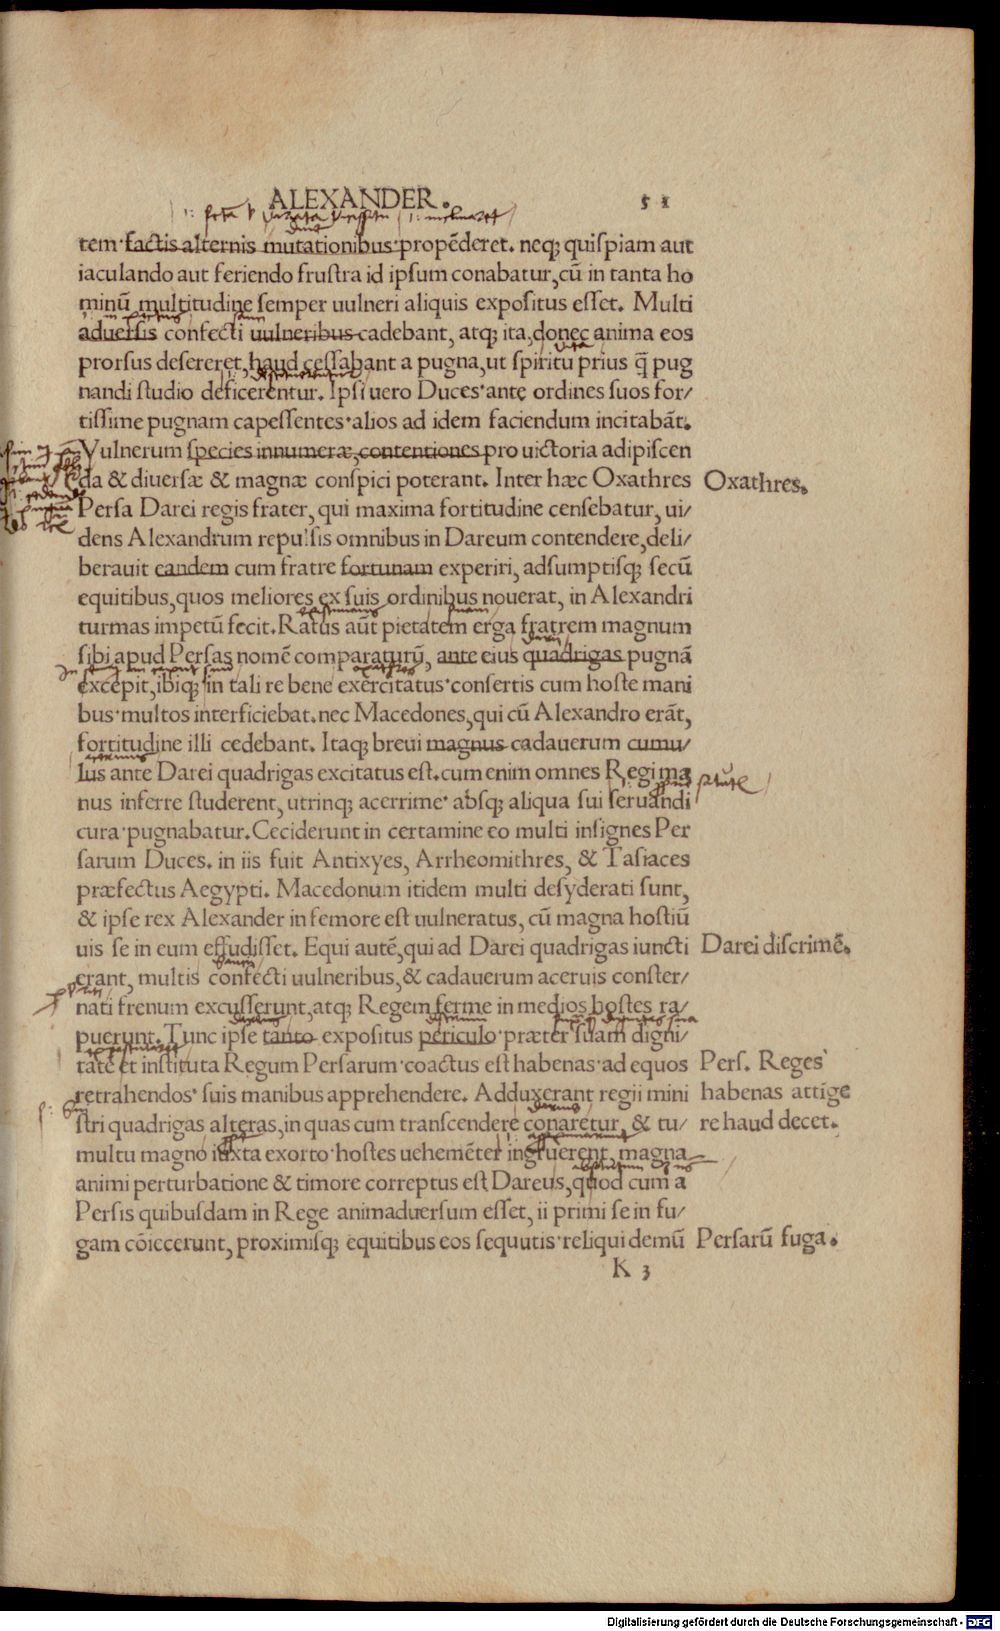 ALEXANDER. 51
tem·factis alternis mutationibus·propēderet. neq; quispiam aut
iaculando aut feriendo frustra id ipsum conabatur, cū in tanta ho
minū multitudine semper uulneri aliquis expositus esset. Multi
aduersis confecti uulneribus cadebant, atq; ita, donec anima eos
prorsus desereret, haud cessabant a pugna, ut spiritu prius q̄ pug
nandi studio deficerentur. Ipsi uero Duces·ante ordines suos for/
tissime pugnam capessentes·alios ad idem faciendum incitabāt.
Vulnerum species innumeræ, contentiones pro uictoria adipiscen
da & diuersæ & magnæ conspici poterant. Inter hæc Oxathres
Oxathres.
Persa Darei regis frater, qui maxima fortitudine censebatur, ui/
dens Alexandrum repulsis omnibus in Dareum contendere, deli/
berauit eandem cum fratre fortunam experiri, adsumptisq; secū
equitibus, quos meliores ex suis ordinibus nouerat, in Alexandri
turmas impetū fecit. Ratus aūt pietatem erga fratrem magnum
sibi apud Persas nomē comparaturū, ante eius quadrigas pugnā
excepit, ibiq; in tali re bene exercitatus·consertis cum hoste mani
bus·multos interficiebat. nec Macedones, qui cū Alexandro erāt,
fortitudine illi cedebant. Itaq; breui magnus cadauerum cumu/
lus ante Darei quadrigas excitatus est. cum enim omnes Regi ma
nus inferre studerent, utrinq; acerrime·absq; aliqua sui seruandi
cura·pugnabatur. Ceciderunt in certamine eo multi insignes Per
sarum Duces. in iis fuit Antixyes, Arrheomithres, & Tasiaces
præfectus Aegypti. Macedonum itidem multi desyderati sunt,
& ipse rex Alexander in femore est uulneratus, cū magna hostiū
uis se in eum effudisset. Equi autē, qui ad Darei quadrigas iuncti
Darei discrimē.
erant, multis confecti uulneribus, & cadauerum aceruis conster/
nati frenum excusserunt, atq; Regem ferme in medios hostes ra/
puerunt. Tunc ipse tanto expositus periculo·præter suam digni/
tatē et instituta Regum Persarum·coactus est habenas·ad equos
Pers. Reges
retrahendos·suis manibus apprehendere. Adduxerant regii mini
habenas attige
stri quadrigas alteras, in quas cum transcendere conaretur, & tu/
re haud decet.
multu magno iuxta exorto·hostes uehemēter ingruerent, magna
animi perturbatione & timore correptus est Dareus, quod cum a
Persis quibusdam in Rege animaduersum esset, ii primi se in fu/
gam cōiecerunt, proximisq; equitibus eos sequutis·reliqui demū
Persarū fuga.
K 3
Digitalisierung gefördert durch die Deutsche Forschungsgemeinschaft - DFG